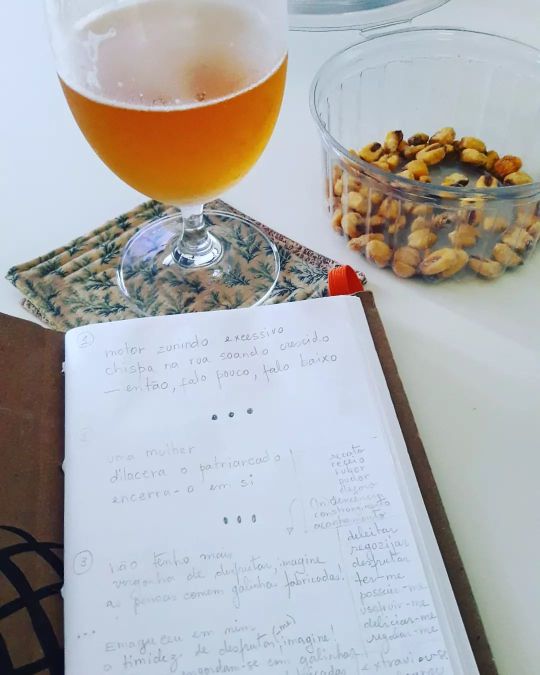 1
motor zunindo excessivo
chispa na rua soando crescido
— então, falo pouco, falo baixo
• • •
2
uma mulher
dilacera o patriarcado
encerra-o em si
• • •
3
não tenho mais
vergonha de desfrutar, imagine
as pessoas comem galinhas fabricadas!
...
Emagreceu em mim
a timidez de desfrutar(-me), imagine!
com galinhas
recato
receio
rubor
pudor
decoro
(in)decência
constrangimento
acanhamento
deleitar
regozijar
desfrutar
ter-me
possuir-me
usufruir-me
deliciar-me
regalar-me
extraviou-se